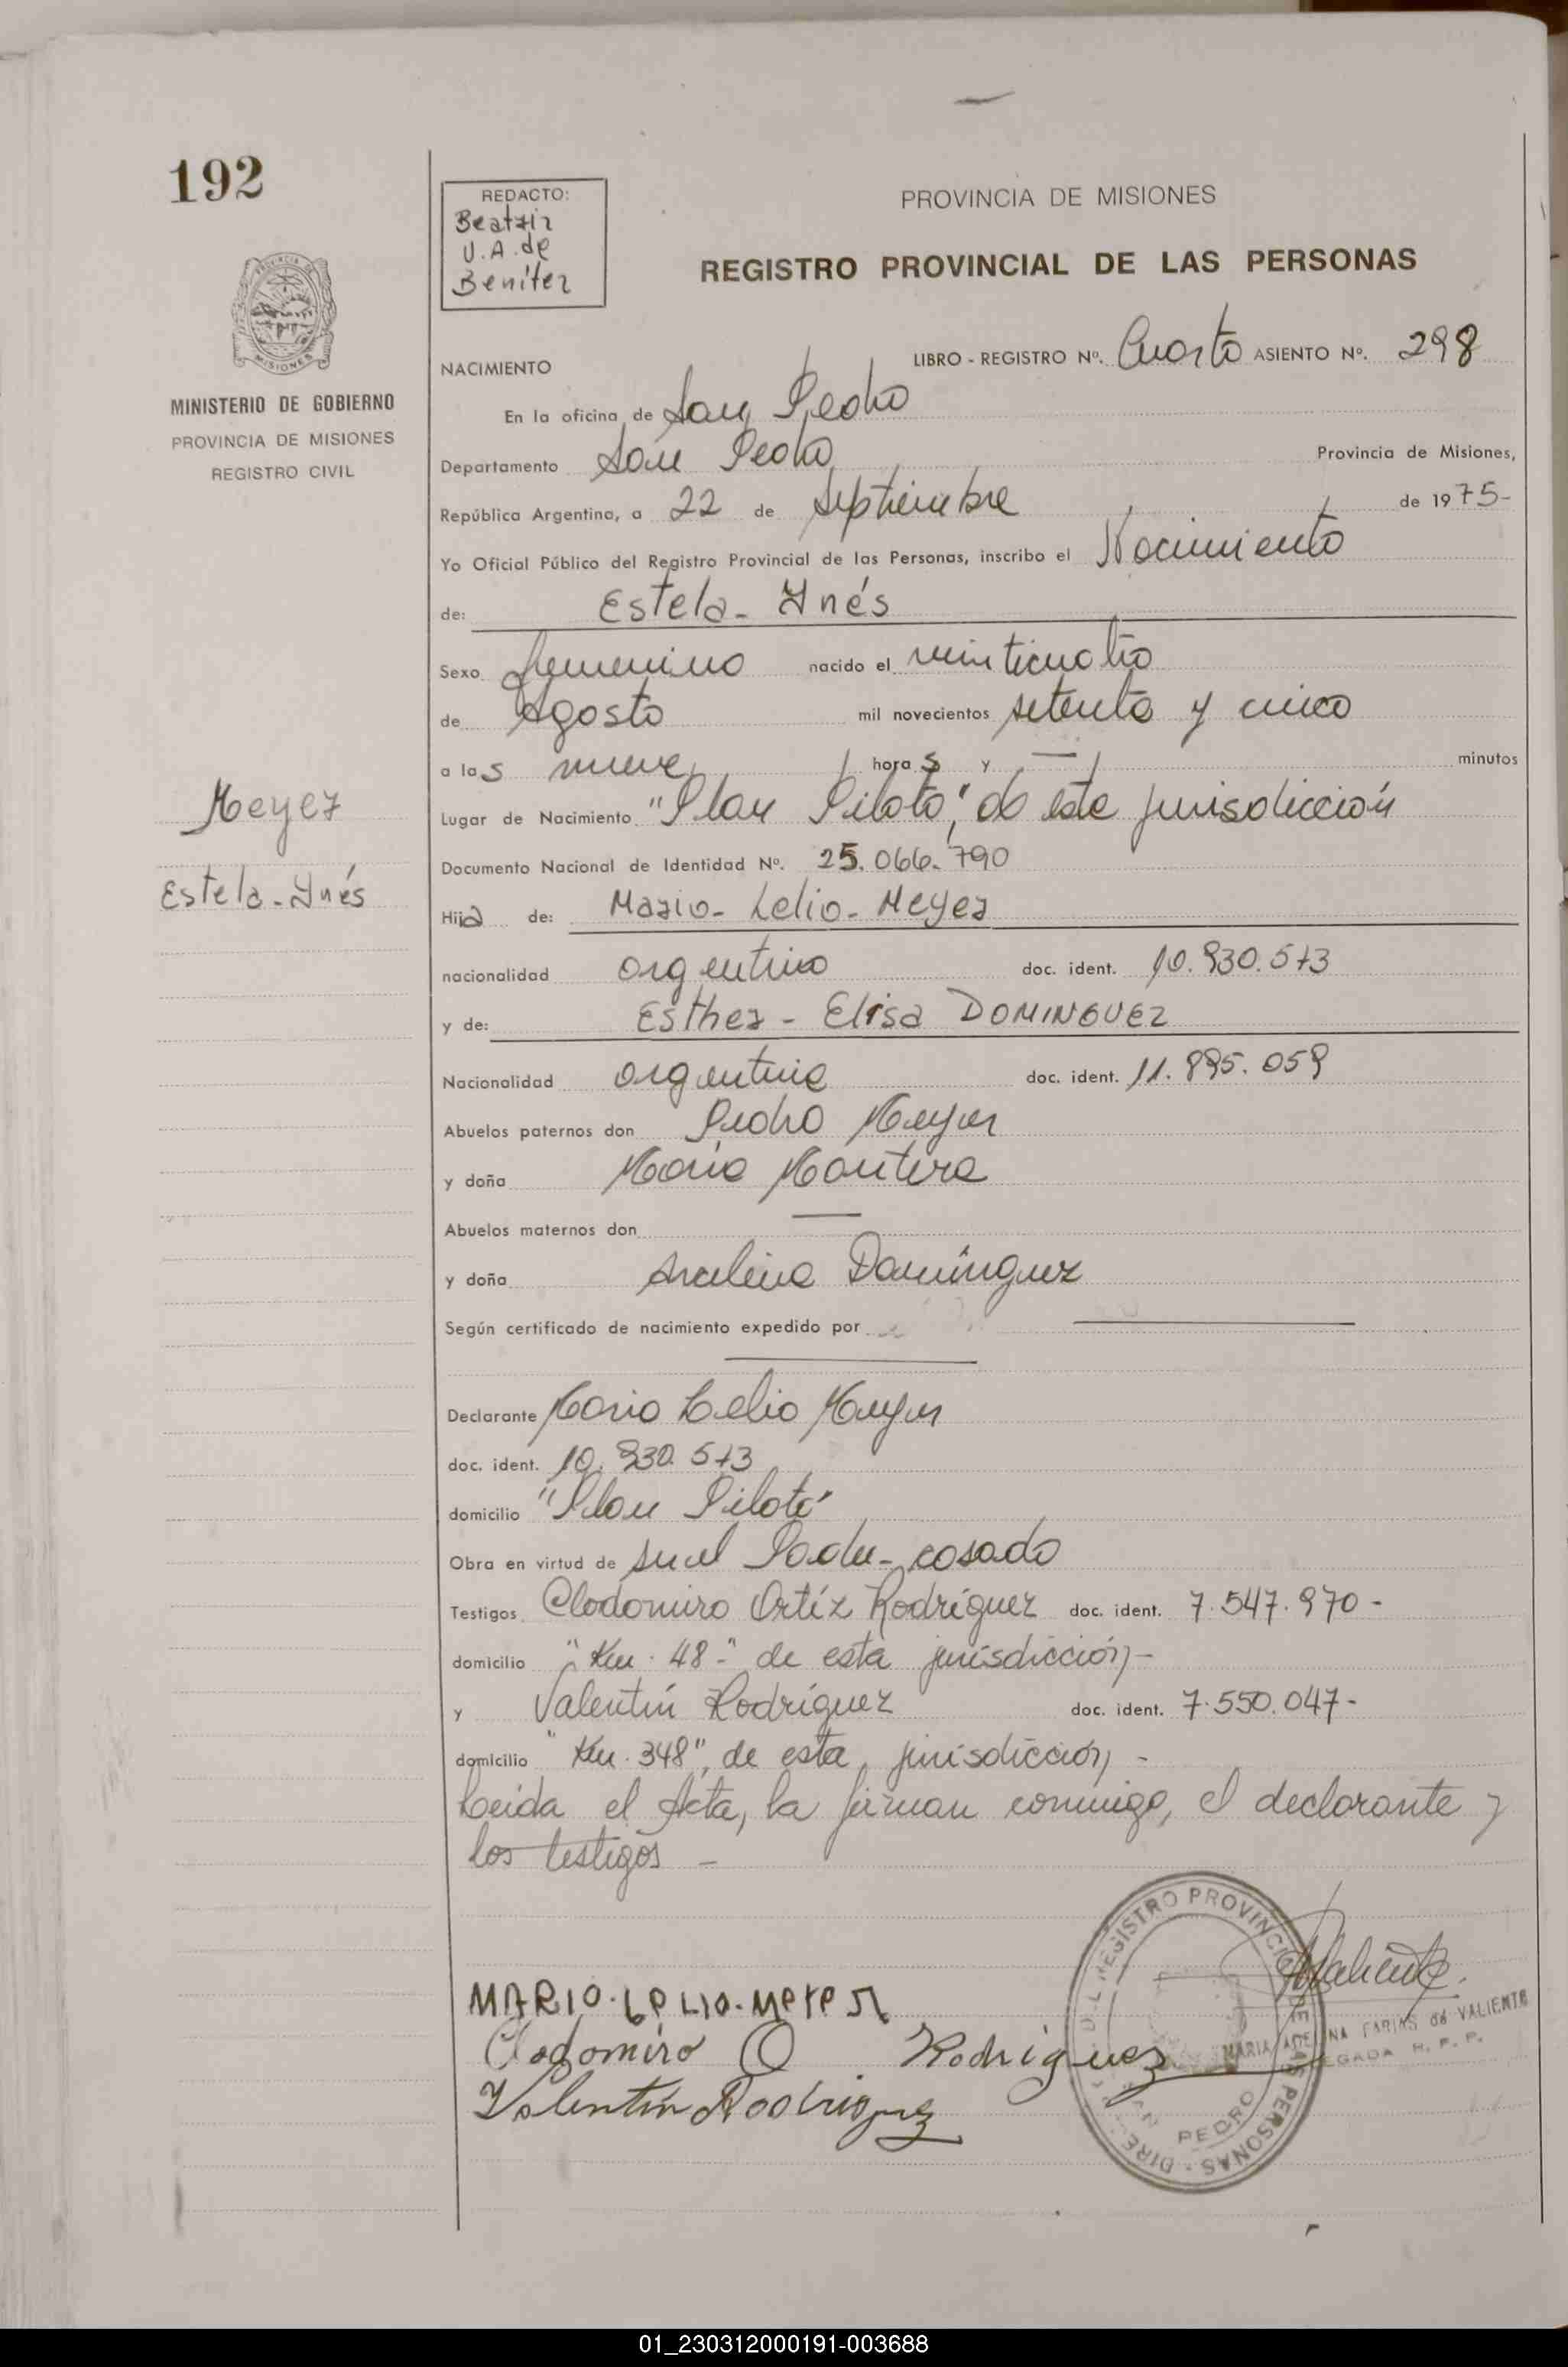 192
REDACTO:
Beatriz
U.A. de
Benítez
PROVINCIA DE MISIONES
REGISTRO PROVINCIAL DE LAS PERSONAS
MISIONES
MINISTERIO DE GOBIERNO
PROVINCIA DE MISIONES
REGISTRO CIVIL
NACIMIENTO
LIBRO - REGISTRO Nº. Cuarto ASIENTO Nº. 298
En la oficina de San Pedro
Departamento San Pedro Provincia de Misiones,
República Argentina, a 22 de septiembre de 1975-
Yo Oficial Público del Registro Provincial de las Personas, inscribo el Nacimiento
de: Estela- Ynés
Sexo femenino nacido el veinticuatro
de Agosto mil novecientos setenta y cinco
a las nueve horas y — minutos
Lugar de Nacimiento "Plan Piloto", de esta jurisdicción
Documento Nacional de Identidad Nº. 25.066.790
Meyer
Estela-Ynés
Hija de: Mario- Lelio- Meyer
nacionalidad argentino doc. ident. 10.930.573
y de: Esther - Elisa DOMINGUEZ
Nacionalidad argentina doc. ident. 11.895.059
Abuelos paternos don Pedro Meyer
y doña María
Abuelos maternos don —
y doña Domínguez
Según certificado de nacimiento expedido por
Declarante Mario Lelio Meyer
doc. ident. 10.930.573
domicilio "Plan Piloto"
Obra en virtud de ser el Padre- casado
Testigos Clodomiro Ortíz Rodríguez doc. ident. 7.547.970-
domicilio "Km. 48-" de esta jurisdicción-
y Valentín Rodríguez doc. ident. 7.550.047-
domicilio "Km. 348", de esta jurisdicción-
Leida el Acta, la firman conmigo, el declarante y
los testigos-
MARIO-LELIO-MEYER
Clodomiro O Rodriguez
Valentín Rodriguez
REGISTRO PROVINCIAL DE LAS PERSONAS
SAN PEDRO
Valiente
MARIA ADELINA FARIAS de VALIENTE
DELEGADA R. P. P.
01_230312000191-003688